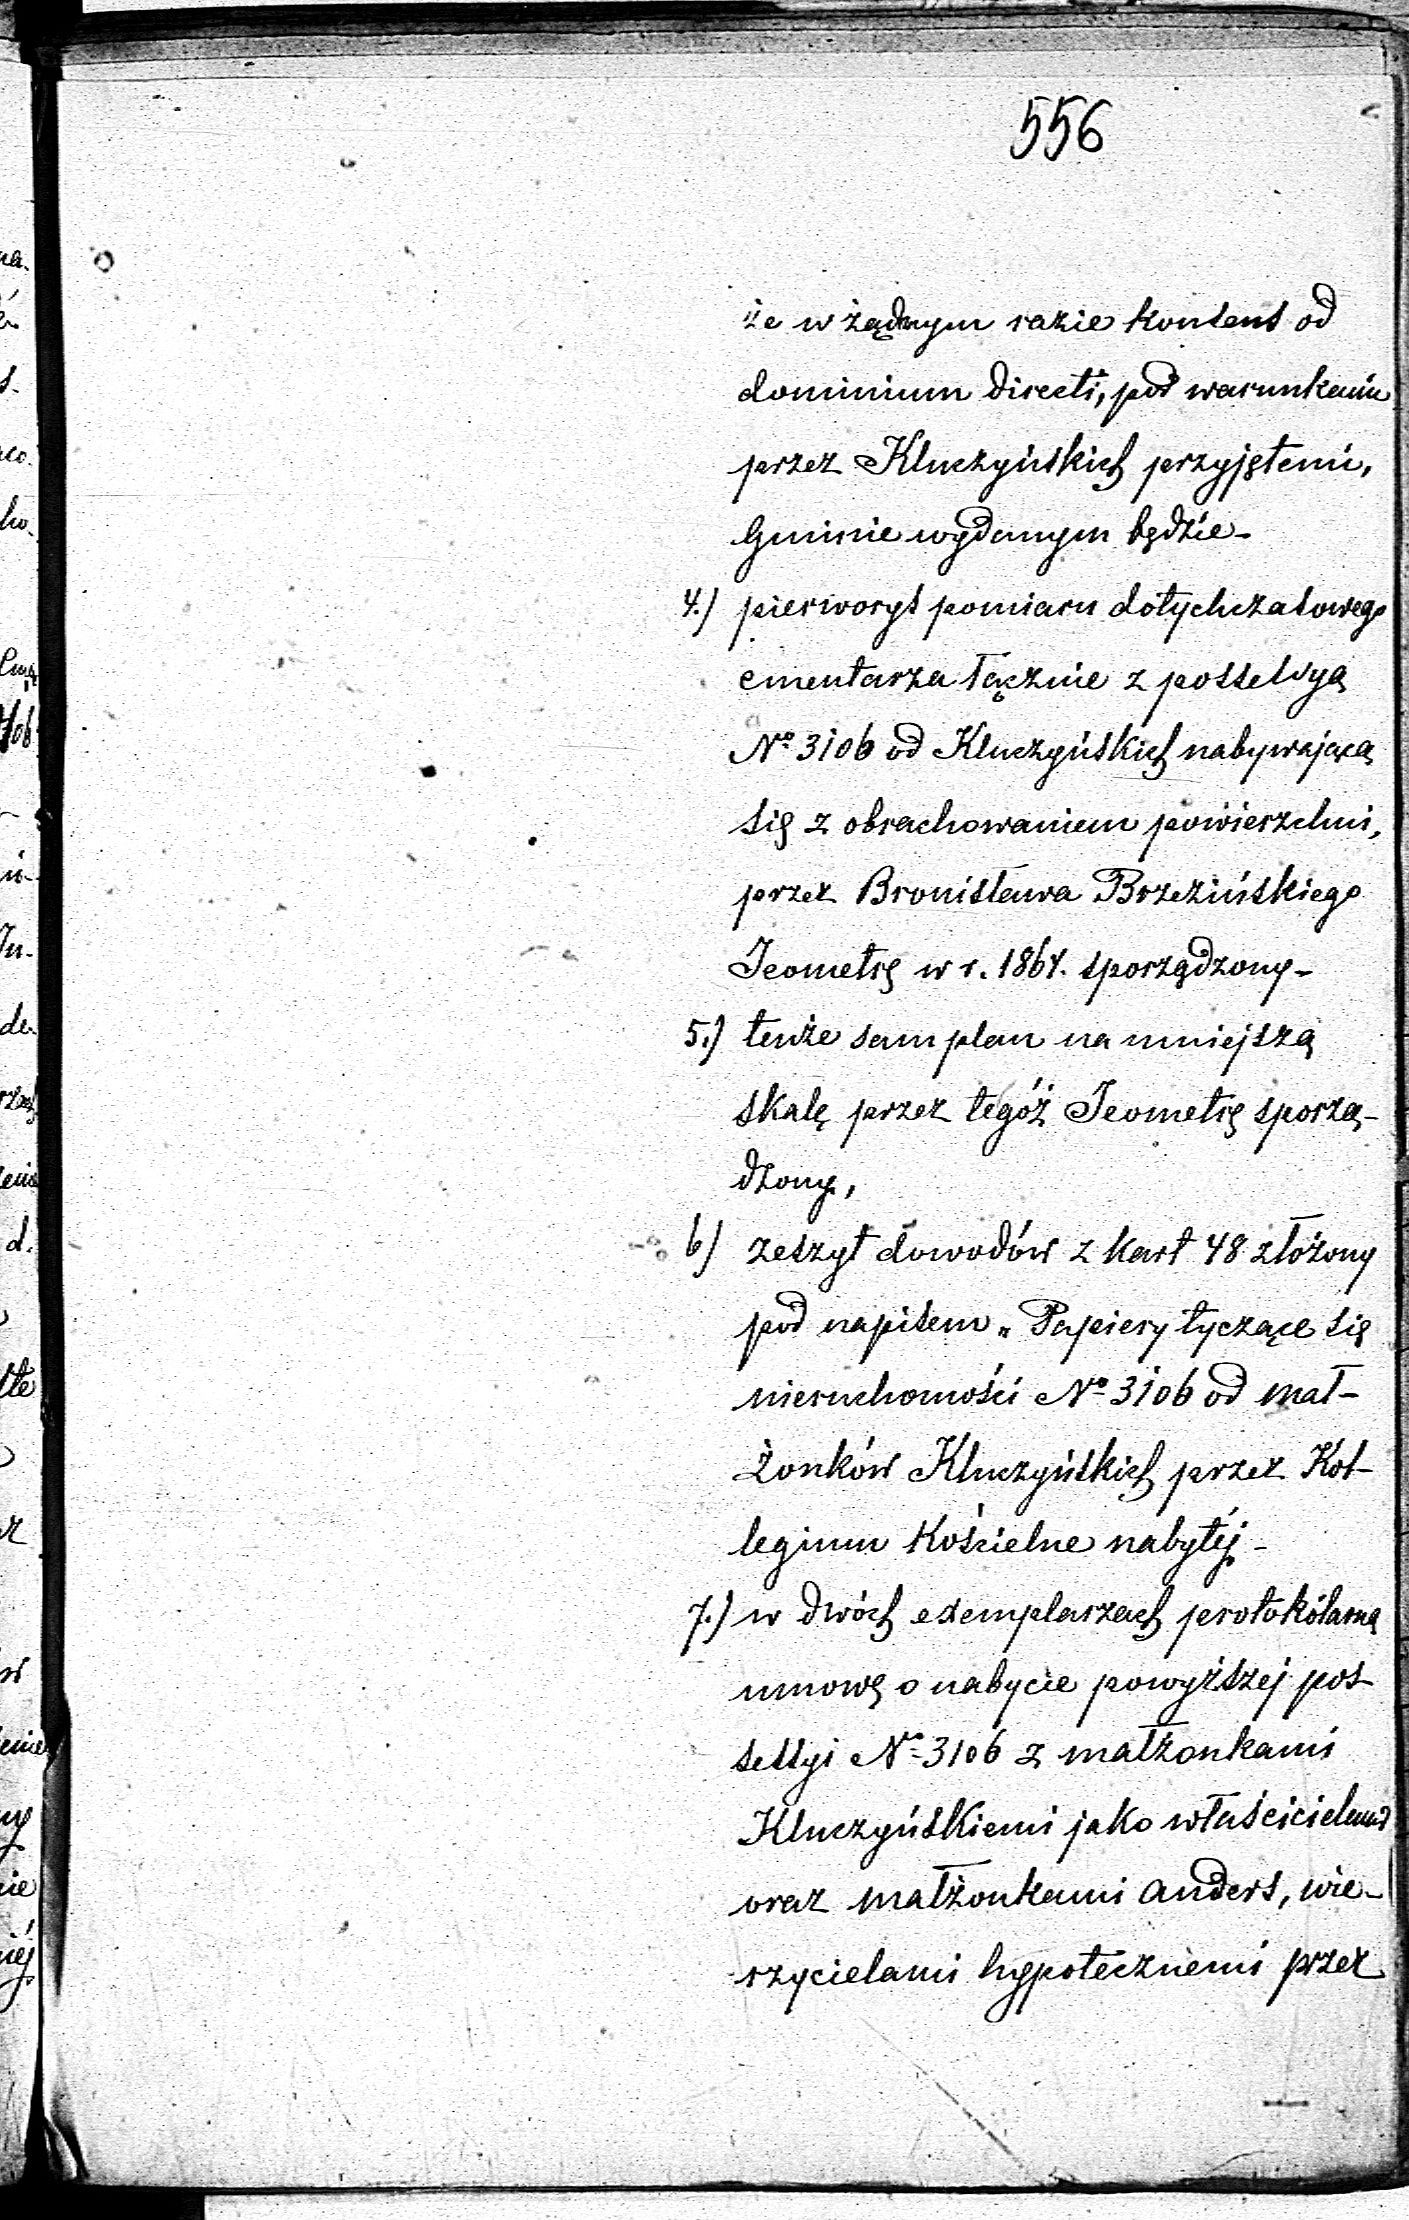 556
że w żądnym razie konsens od
dominium directi, pod warunkami
przez Kluczyńskich przyjętemi,
Gminie wydanym będzie -
4.) pierworys pomiaru dotychczasowego
cmentarza łącznie z possessyą
No 3106 od Kluczyńskich nabywającą
się z obrachowaniem powierzchni,
przez Bronisława Brzezińskiego
Jeometrę w r. 1864. sporządzony -
5.) tenże sam plan na mniejszą
skalę przez tegóż Jeometrę sporzą-
dzony,
6) zeszyt dowodów z kart 48 złożony
pod napisem „Papiery tyczące się
nieruchomości No 3106 od mał-
żonków Kluczyńskich przez Kol-
legium Kościelne nabytéj -
7.) w dwóch exemplarzach protokólarną
umowę o nabycie powyższej pos-
sessyi No 3106 z małżonkami
Kluczyńskiemi jako właścicielami
oraz małżonkami Anders, wie-
rzycielami hypotecznemi przez